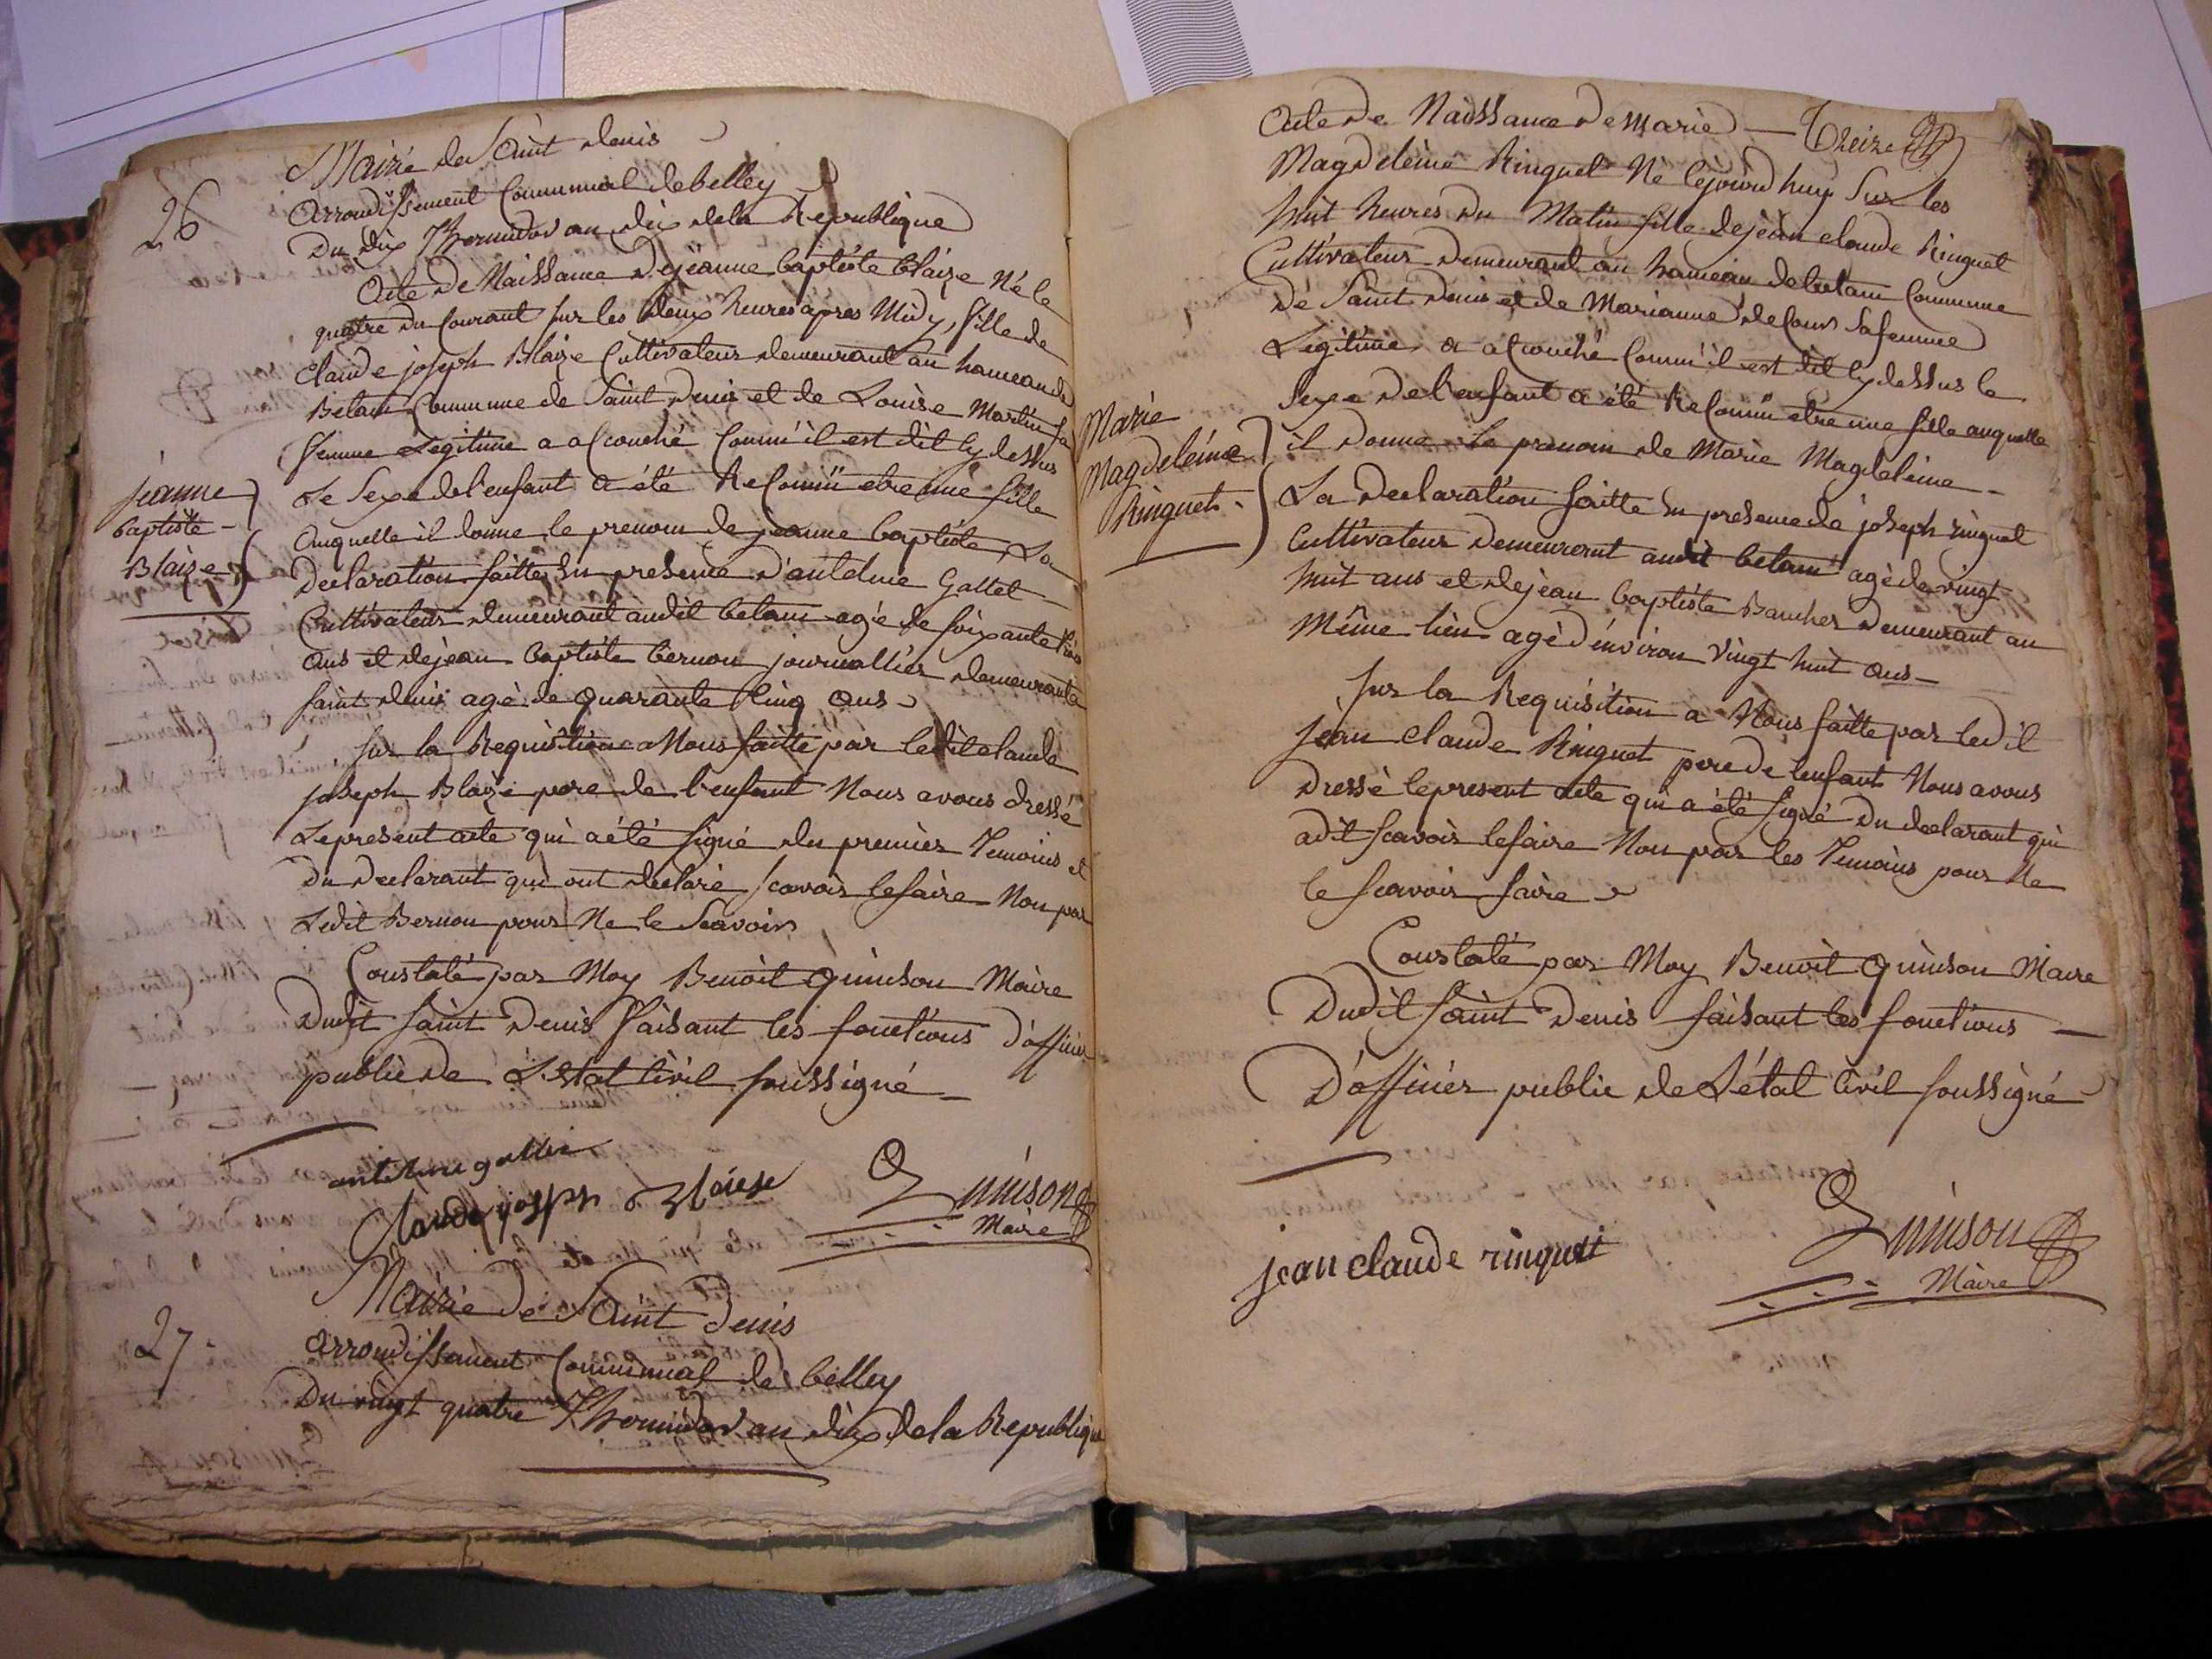 26
Mairie de Saint denis
Arrondissement Communial de belley
Du dix Thermidor an dix de la Republique
Acte de Naissance de jeanne baptiste blaize Né le
quatre du Courant sur les deux heures après Midy, fille de
Claude joseph Blaize Cultivateur demeurant au hameau de
Betam Commune de Saint denis et de Louise Martin sa
femme Legitime a acouché Comm'il est dit cy dessus
Le Sexe de l'enfant a été Reconnu etre une fille
auquelle il donne le prenom de jeanne baptiste, La
Declaration faitte en presence d'antelme Gallet
Cultivateur demeurant audit betam agé de soixante
ans et de jean baptiste bernon journallier demeurant a
saint denis agé de quarante Cinq ans
Sur la Requisition a Nous faitte par ledit claude
joseph Blaize pere de l'enfant Nous avons dressé
Le present acte qui a été signé du premier Temoins et
du declarant qui ont declaré scavoir le faire Non pas
Ledit Bernon pour Ne le Scavoir
Constaté par Moy Benoit Quinson Maire
dudit saint Denis faisant les fonctions d'officier
public de L'Etat Civil soussigné
jeanne
baptiste
Blaize
Claude joseph Blaise
Quinson
Maire
27.
Mairie de Saint Denis
Arrondissement Communial de belley
Du vingt quatre Thermidor an dix de la Republique
Treize
Acte de Naissance de Marie
Magdeleine Ringuet Né cejourd'huy Sur les
huit heures du Matin fille de jean claude Ringuet
Cultivateur demeurant au hameau de betam Commune
de Saint denis et de Marianne decour sa femme
Legitime a acouché Comm'il est dit cy dessus le
Sexe de l'enfant a été Reconnu etre une fille auquelle
il donne le prenom de Marie Magdeleine
La declaration faitte en presence de joseph ringuet
Cultivateur demeurant audit betam agé de vingt
huit ans et de jean baptiste Baucher demeurant au
Même lieu agé d'environ vingt huit ans
Sur la Requisition a Nous faitte par ledit
jean claude Ringuet pere de l'enfant Nous avons
dressé le present acte qui a été signé du declarant qui
a dit scavoir le faire Non pas les Temoins pour Ne
le scavoir faire
Constaté par Moy Benoit Quinson Maire
Dudit saint Denis faisant les fonctions
D'officier public de L'état Civil soussigné
Marie
Magdeleine
Ringuet
jean claude ringuet
Quinson
Maire